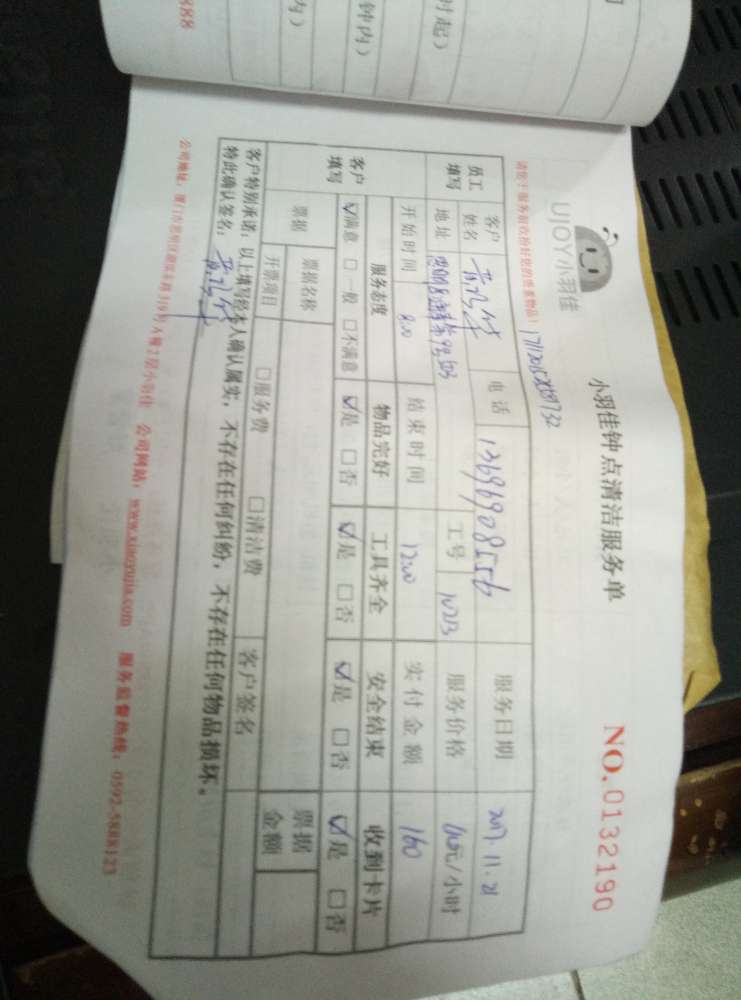 UJOY小羽佳
小羽佳钟点清洁服务单
NO.0132190
请您于服务前收拾好您的贵重物品!
员工填写 客户姓名 电话 13696908556 服务日期 2017.11.21
地址 工号 10213 服务价格 40元/小时
开始时间 8:00 结束时间 12:00 实付金额 160
客户填写 服务态度 物品完好 工具齐全 安全结束 收到卡片
☑满意 □一般 □不满意 ☑是 □否 ☑是 □否 ☑是 □否 ☑是 □否
票据 票据名称 票据金额
开票项目 □服务费 □清洁费 客户签名
客户特别承诺:以上填写经本人确认属实,不存在任何纠纷,不存在任何物品损坏。
特此确认签名:
公司网站:www.xiaoyujia.com 服务监督热线:0592-5888123
时起)
钟内)
内)
888